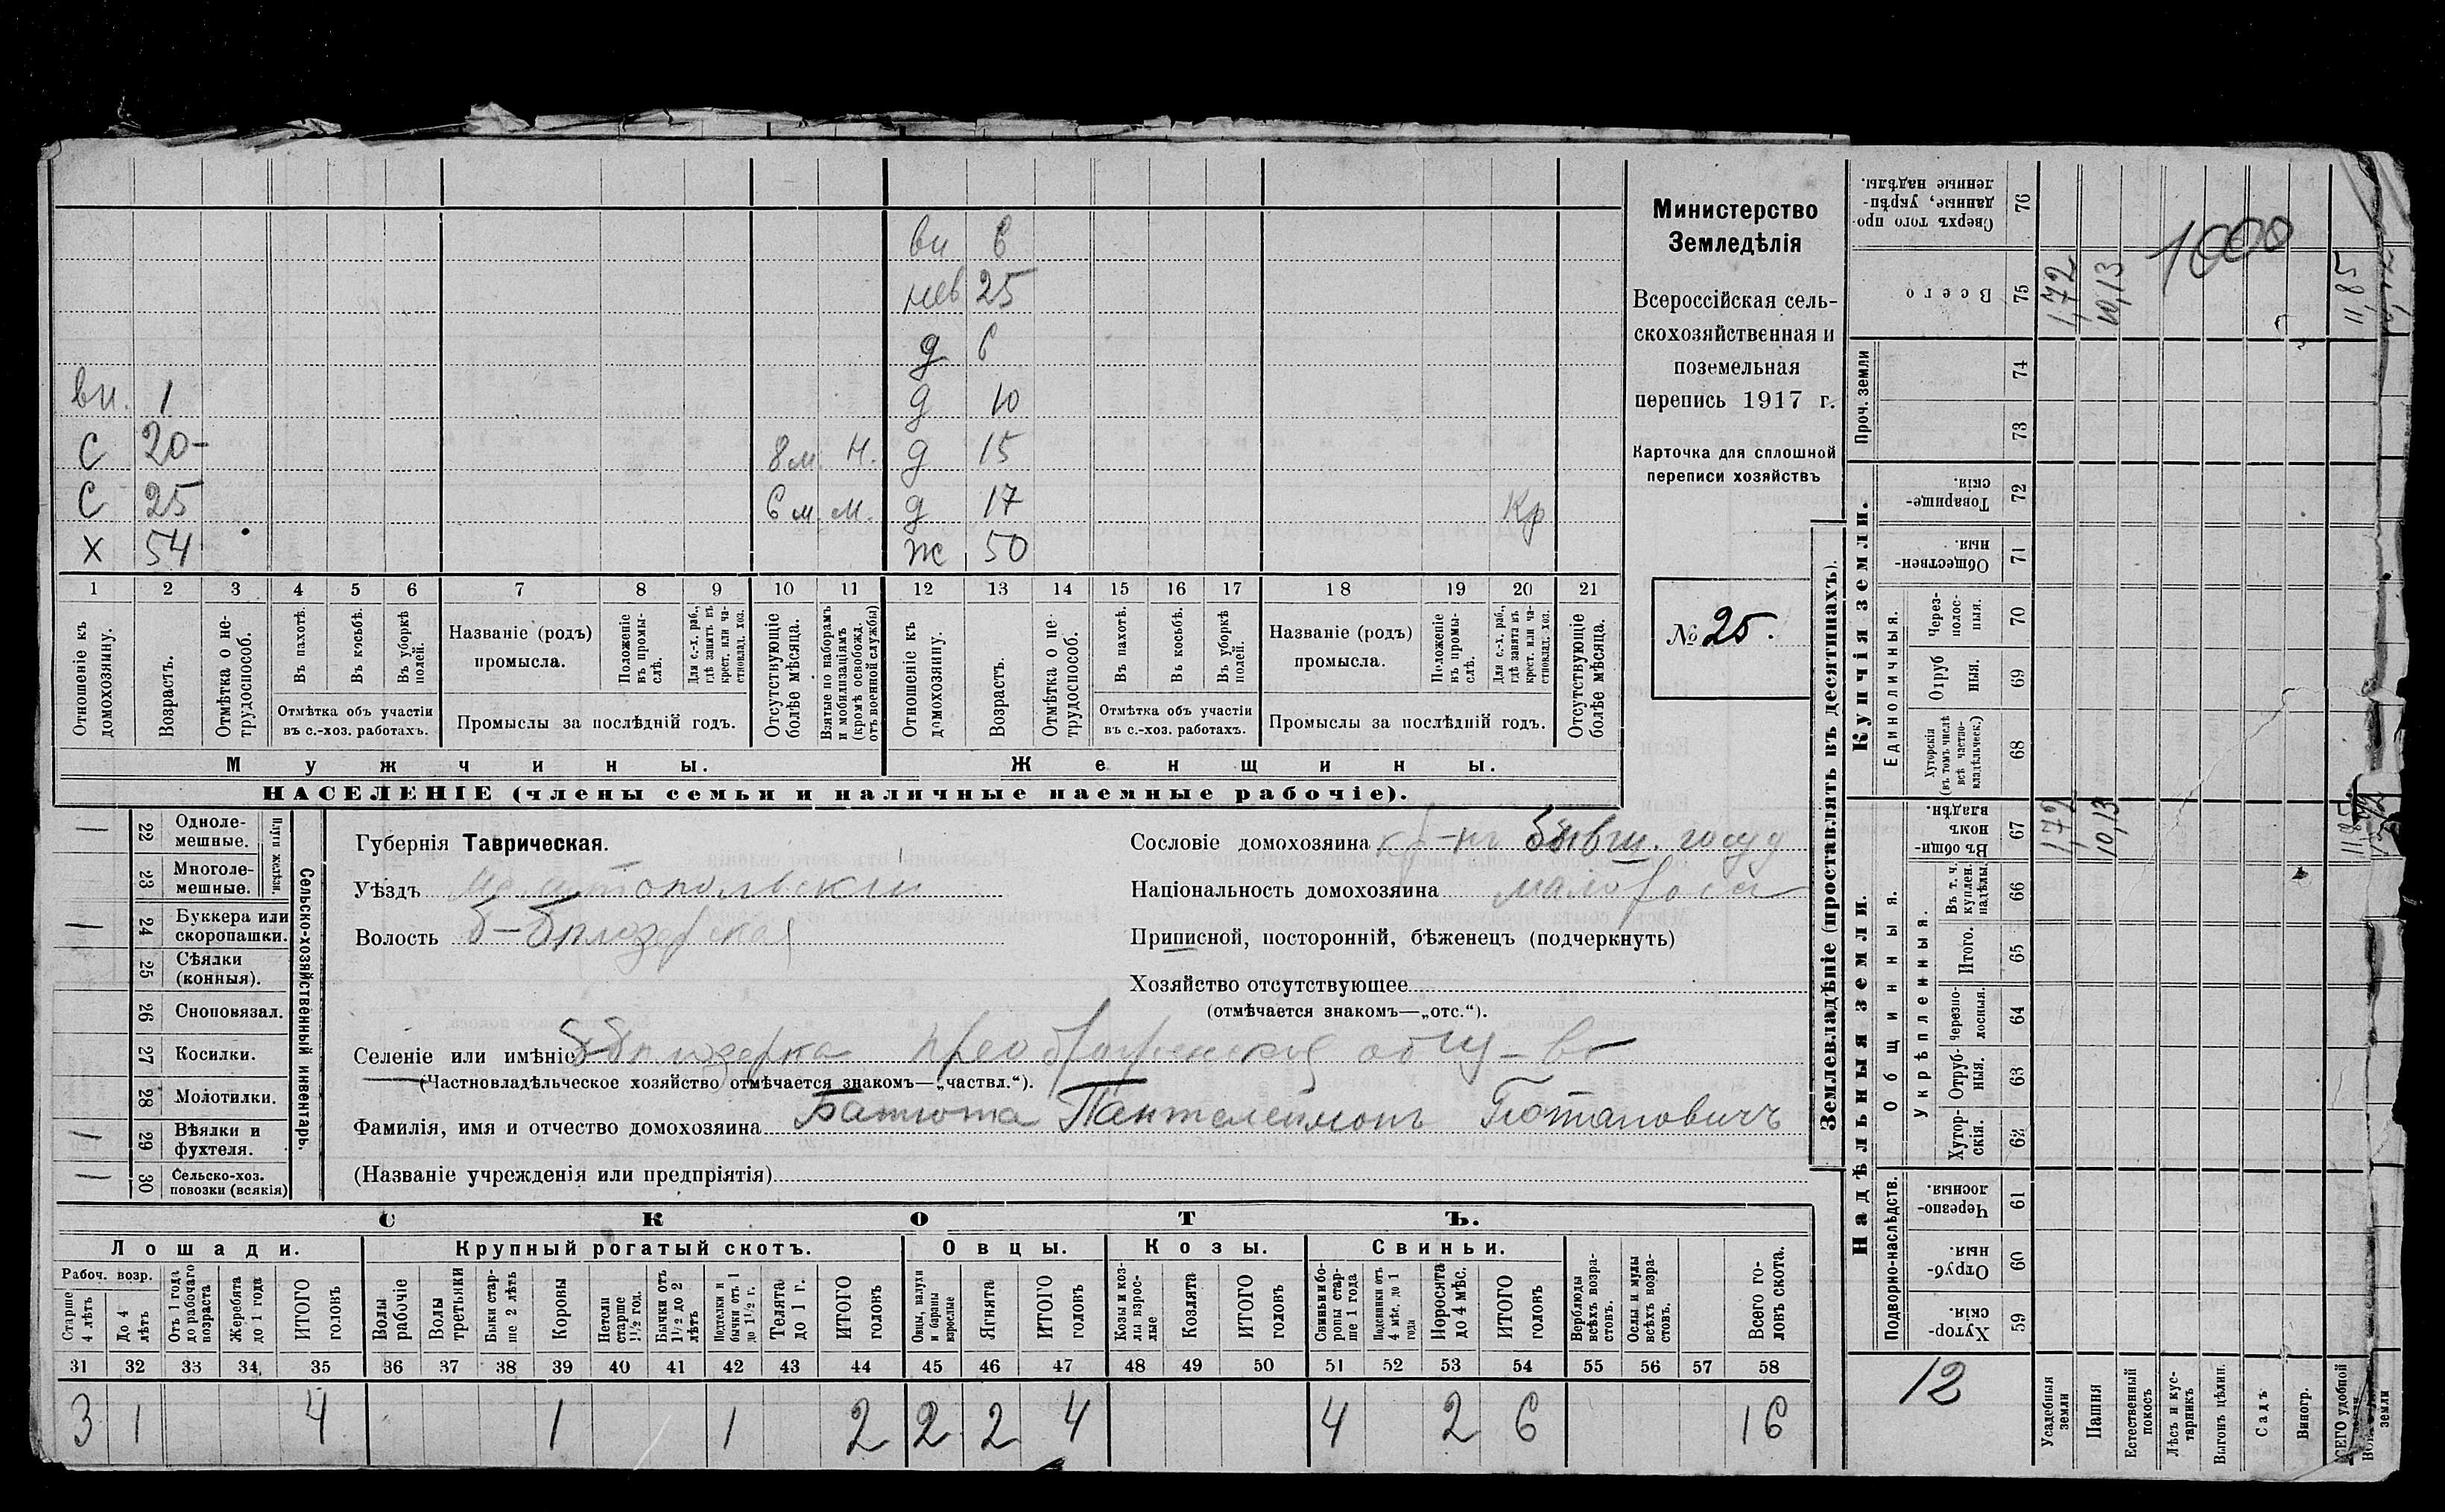 вн 6
нев 25
д 6
вн. 1 д 10
С 20- 8 м. Н. д 15
С 25 6 м. м. д 17 Кр
Х 54 ж 50
1 2 3 4 5 6 7 8 9 10 11 12 13 14 15 16 17 18 19 20 21
Отношеніе къ домохозяину.
Возрастъ.
Отмѣтка о нетрудоспособ.
Въ пахотѣ.
Въ косьбѣ.
Въ уборкѣ полей.
Отмѣтка объ участіи
въ с.-хоз. работахъ.
Названіе (родъ)
промысла.
Положеніе въ промыслѣ.
Для с.-х. раб., гдѣ занятъ въ крест. или частновлад. хоз.
Промыслы за послѣдній годъ.
Отсутствующіе болѣе мѣсяца.
Взятые по наборамъ и мобилизаціямъ (кромѣ освобожд. отъ военной службы)
Отношеніе къ домохозяину.
Возрастъ.
Отмѣтка о нетрудоспособ.
Въ пахотѣ.
Въ косьбѣ.
Въ уборкѣ полей.
Отмѣтка объ участіи
въ с.-хоз. работахъ.
Названіе (родъ)
промысла.
Положеніе въ промыслѣ.
Для с.-х. раб., гдѣ занята въ крест. или частновлад. хоз.
Промыслы за послѣдній годъ.
Отсутствующіе болѣе мѣсяца.
Мужчины. Женщины.
НАСЕЛЕНІЕ (члены семьи и наличные наемные рабочіе).
Министерство
Земледѣлія
Всероссійская сель-
скохозяйственная и
поземельная
перепись 1917 г.
Карточка для сплошной
переписи хозяйствъ
№ 25.
Сельско-хозяйственный инвентарь.
Плуги желѣзн.
— 22 Однолемешные.
23 Многолемешные.
— 24 Буккера или скоропашки.
25 Сѣялки (конныя).
26 Сноповязал.
27 Косилки.
28 Молотилки.
— 29 Вѣялки и фухтеля.
— 30 Сельско-хоз. повозки (всякія)
Губернія Таврическая.
Уѣздъ Мелитопольскій
Волость Б-Бѣлозерская
Сословіе домохозяина кр-нъ бывш. госуд
Національность домохозяина малоросс
Приписной, посторонній, бѣженецъ (подчеркнуть)
Хозяйство отсутствующее
(отмѣчается знакомъ—„отс.“).
Селеніе или имѣніе Б Бѣлозерка Преображенское общ-во
(Частновладѣльческое хозяйство отмѣчается знакомъ—„частвл.“).
Фамилія, имя и отчество домохозяина Батюта Пантелеимонъ Потаповичъ
(Названіе учрежденія или предпріятія)
СКОТЪ.
Лошади. Крупный рогатый скотъ. Овцы. Козы. Свиньи.
Рабоч. возр.
Старше 4 лѣтъ
До 4 лѣтъ
Отъ 1 года до рабочаго возраста
Жеребята до 1 года
ИТОГО головъ
Волы рабочіе
Волы третьяки
Быки старше 2 лѣтъ
Коровы
Нетели старше 1½ год.
Бычки отъ 1½ до 2 лѣтъ
Подтелки и бычки отъ 1 до 1½ г.
Телята до 1 г.
ИТОГО головъ
Овцы, валухи и бараны взрослые
Ягнята
ИТОГО головъ
Козы и козлы взрослые
Козлята
ИТОГО головъ
Свиньи и боровы старше 1 года
Подсвинки отъ 4 мѣс. до 1 года
Поросята до 4 мѣс.
ИТОГО головъ
Верблюды всѣхъ возрастовъ.
Ослы и мулы всѣхъ возрастовъ.
Всего головъ скота.
31 32 33 34 35 36 37 38 39 40 41 42 43 44 45 46 47 48 49 50 51 52 53 54 55 56 57 58
3 1 4 1 1 2 2 2 4 4 2 6 16
Землевладѣніе (проставлять въ десятинахъ).
Сверхъ того проданные, укрѣпленные надѣлы. 76
1000
Всего 75 1,72 10,13 11,85
Купчія земли.
Проч. земли 74
73
Товарищескія. 72
Общественныя. 71
Единоличныя.
Черезполосныя. 70
Отрубныя. 69
Хуторскія (въ томъ числѣ всѣ частновладѣльческ.) 68
Надѣльныя земли.
Общинныя.
Въ общинномъ владѣн. 67 1,72 10,13 11,85
Укрѣпленныя.
Въ т. ч. куплен. надѣлы. 66
Итого. 65
Черезполосныя. 64
Отрубныя. 63
Хуторскія. 62
Подворно-наслѣдств.
Черезполосныя. 61
Отрубныя. 60
Хуторскія. 59
12
Усадебныя земли
Пашня
Естественный покосъ
Лѣсъ и кустарникъ
Выгонъ цѣлин.
Садъ
Виногр.
ВСЕГО удобной земли